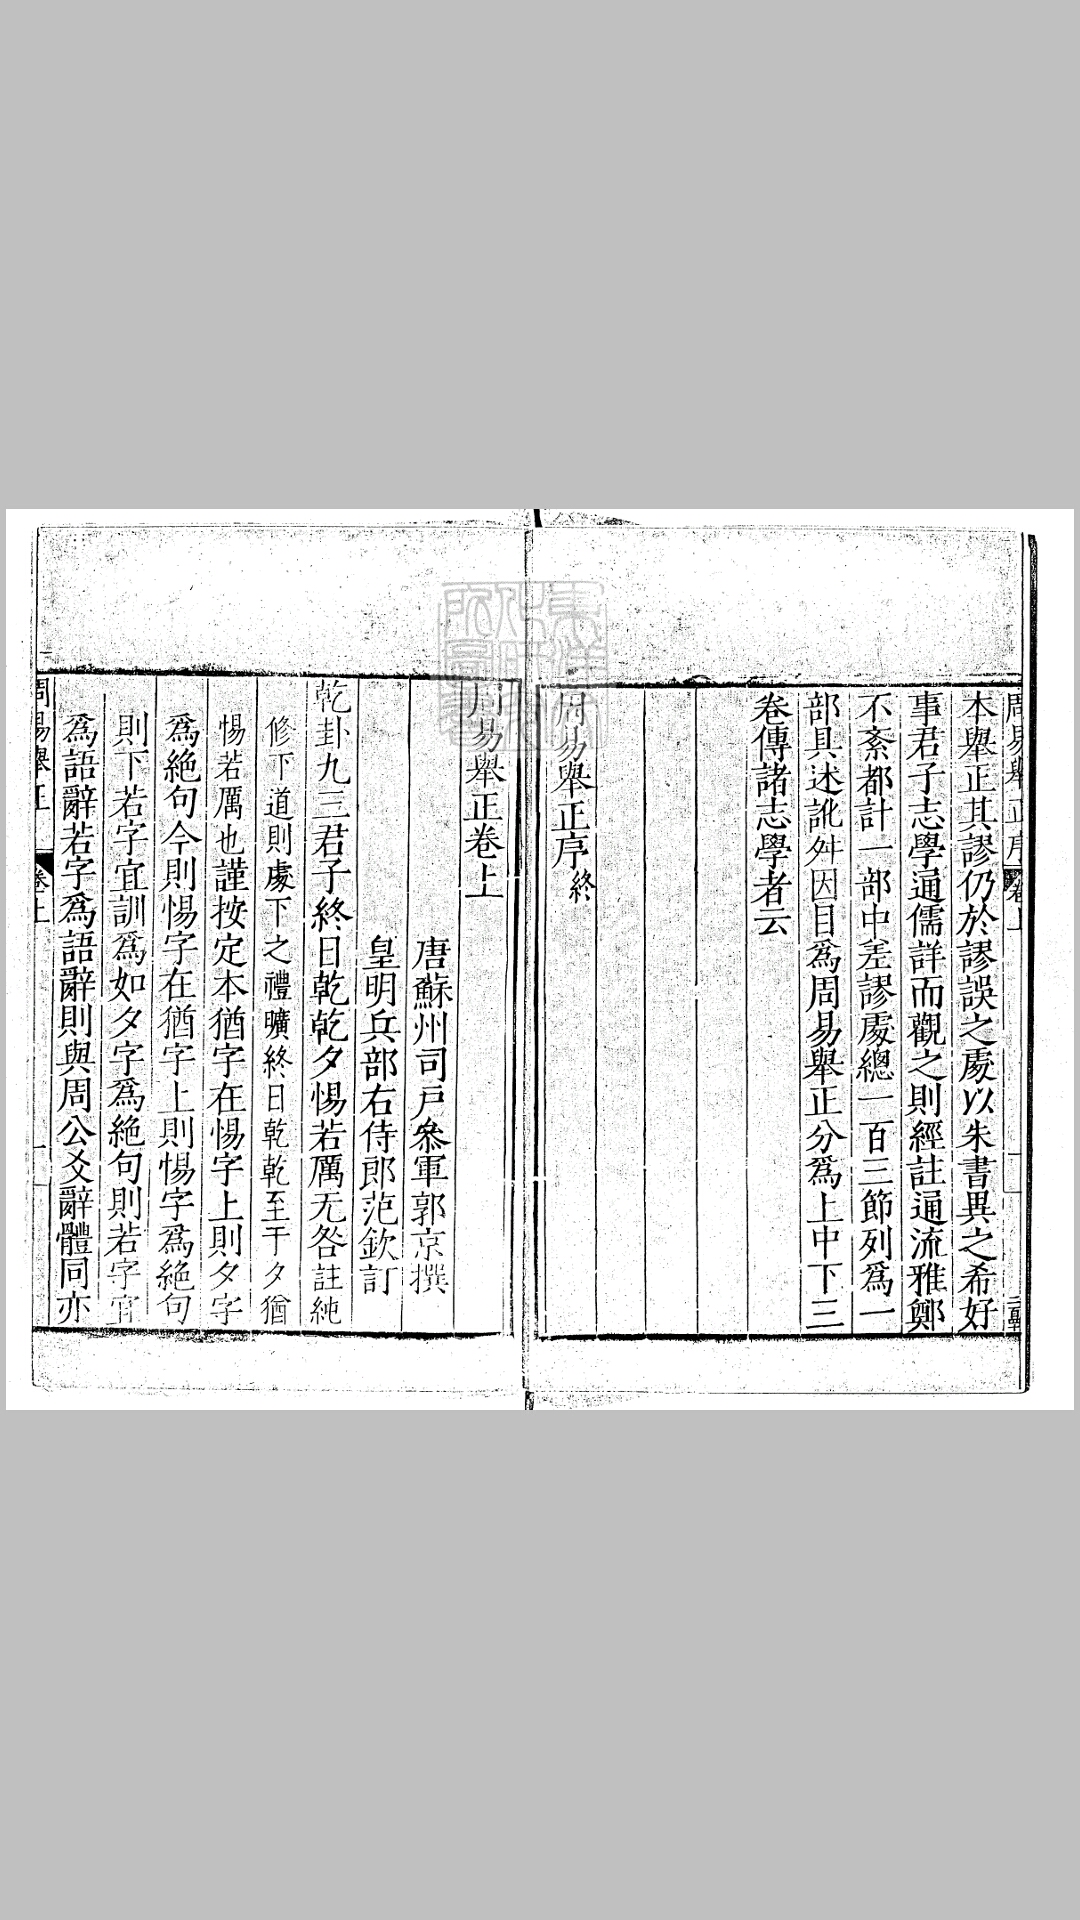 周易舉正序 卷上
本舉正其謬仍於謬誤之處以朱書異之希好
事君子志學通儒詳而觀之則經註通流雅鄭
不紊都計一部中差謬處總一百三節列爲一
部具述訛舛因目爲周易舉正分爲上中下三
卷傳諸志學者云
周易舉正序終
周易舉正卷上
唐蘇州司戶叅軍郭京撰
皇明兵部右侍郎范欽訂
乾卦九三君子終日乾乾夕惕若厲无咎註純
修下道則處下之禮曠終日乾乾至于夕猶
惕若厲也謹按定本猶字在惕字上則夕字
爲絶句今則惕字在猶字上則惕字爲絶句
則下若字宜訓爲如夕字爲絶句則若字宜
爲語辭若字爲語辭則與周公爻辭體同亦
周易舉正 卷上 一